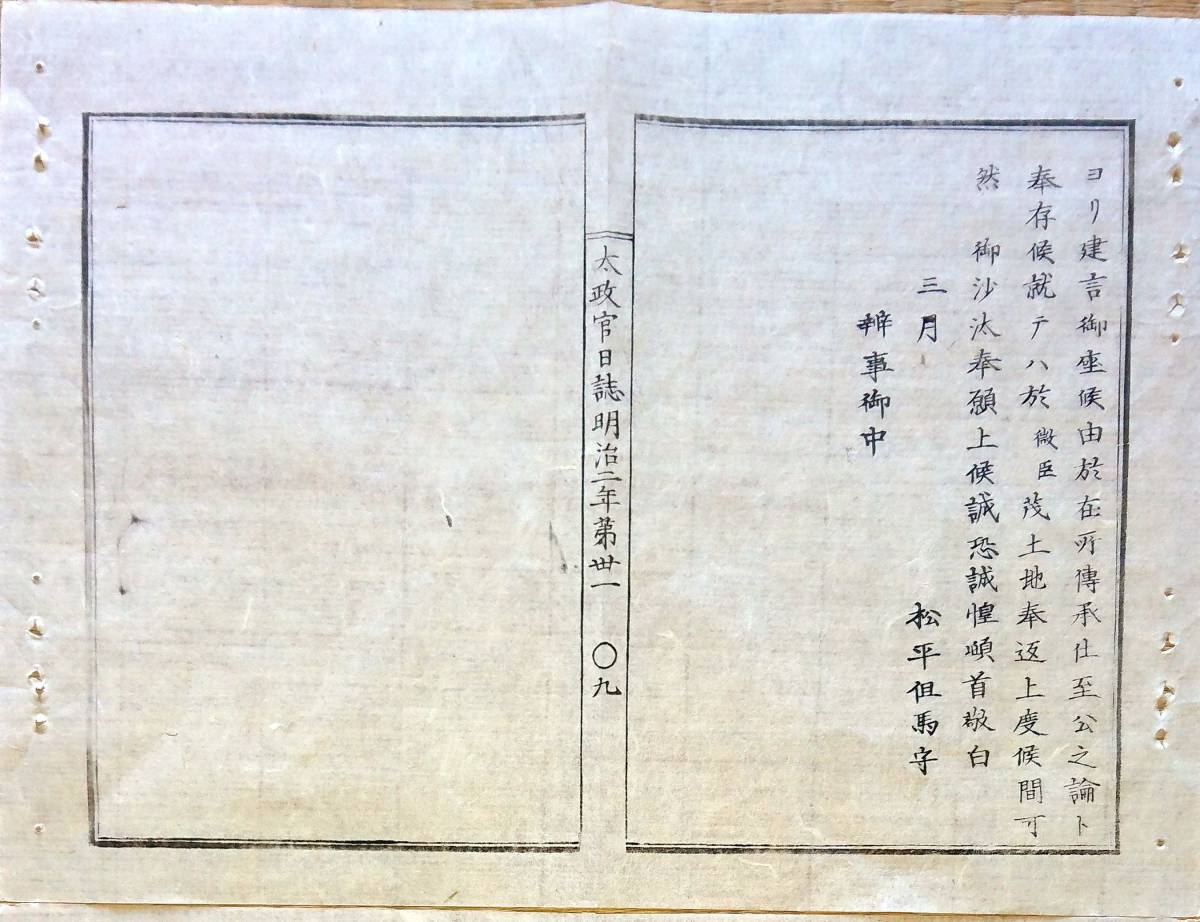 ヨリ建言御座候由於在所傳承仕至公之論ト
奉存候就テハ於微臣茂土地奉返上度候間可
然　御沙汰奉願上候誠恐誠惶頓首敬白
三月　松平但馬守
辨事御中
太政官日誌明治二年第卅一　〇九